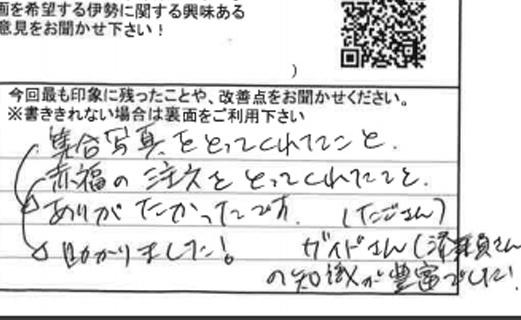 画を希望する伊勢に関する興味ある
意見をお聞かせ下さい！
）
今回最も印象に残ったことや、改善点をお聞かせください。
※書ききれない場合は裏面をご利用下さい
集合写真をとってくれてたこと、
赤福の注文をとってくれてたこと、
ありがたかったです。（たごさん）
助かりました！
ガイドさん（添乗員さん
の知識が豊富でした！